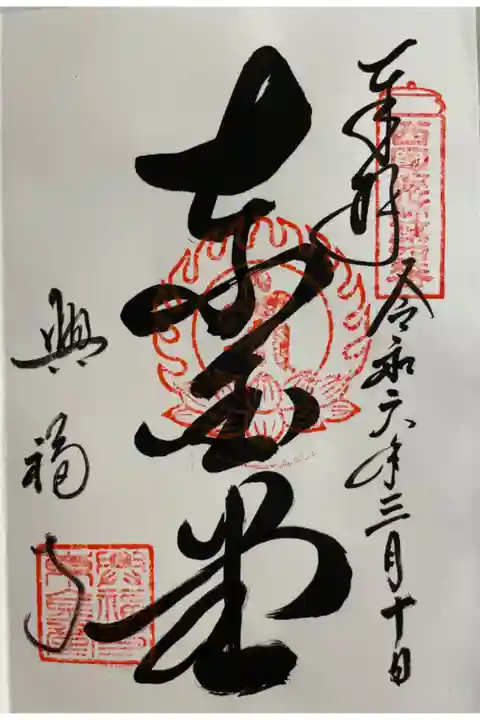 奉拝
令和六年三月十日
東金堂
興福寺